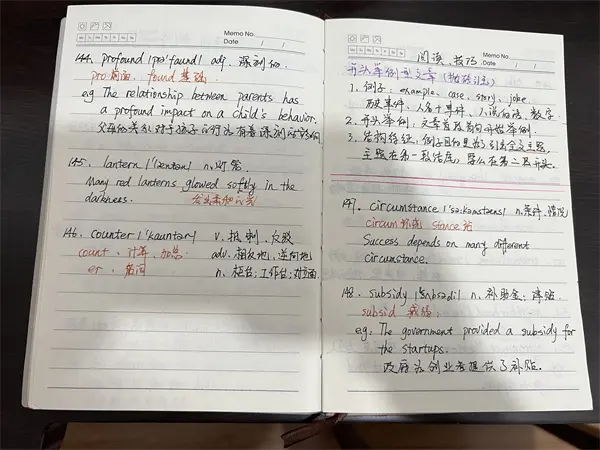 Memo No.
Date / /
144. profound |prə'faund| adj. 深刻的
pro 前面, found 基础
eg The relationship between parents has
a profound impact on a child's behavior.
父母的关系对于孩子的行为有着深刻的影响
145. lantern |'læntən| n. 灯笼
Many red lanterns glowed softly in the
darkness.
146. counter |'kauntər| v. 抵制, 反驳
count, 计算, 加总 adv. 相反地, 逆向地
er, n. 柜台; 工作台; 对方面
Memo No.
Date / /
阅读 技巧
开头举例型文章 (抛砖引玉)
1. 例子: example, case, story, joke
历史事件, 人名+事件, 人说的话, 数字
2. 开头举例: 文章首段前用举例.
3. 结构特征: 例子目的是为了引出全文主题,
主题在第一段结尾, 要么在第二段开头.
147. circumstance |'sə:kəmstəns| n. 条件, 情况
circum 环绕 stance 站
Success depends on many different
circumstance.
148. subsidy |'sʌbsədi| n. 补助金; 津贴
subsid
eg: The government provided a subsidy for
the startups.
政府为创业者提供了补贴.